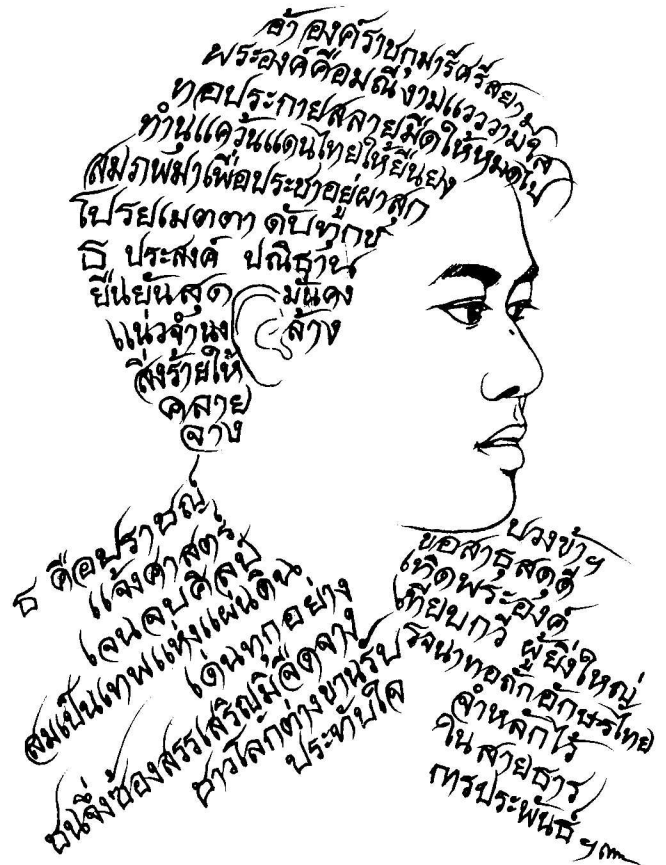 อ้าองค์ราชกุมารีศรีสยาม
พระองค์คือมณีงามแวววามใส
ทอประกายสลายมืดให้หมดไป
ทำนุแคว้นแดนไทยให้ยืนยง
สมภพมาเพื่อประชาอยู่ผาสุก
โปรยเมตตา ดับทุกข์
ธ ประสงค์ ปณิธาน
ยืนยันสุด มั่นคง
แน่วจำนง ล้าง
สิ่งร้ายให้
คลาย
จาง
ธ คือปราชญ์
แจ้งศาสตร์
เจนจบศิลป์
สมเป็นเทพแห่งแผ่นดิน
เด่นทุกอย่าง
ชนจึ่งซ้องสรรเสริญมิจืดจาง
ชาวโลกต่างขานรับ
ประทับใจ
ปวงข้าฯ
ขอสาธุสดุดี
เทิดพระองค์
เทียบกวี ผู้ยิ่งใหญ่
รจนาทอถักอักษรไทย
จำหลักไว้
ในสายธาร
การประพันธ์ ฯ